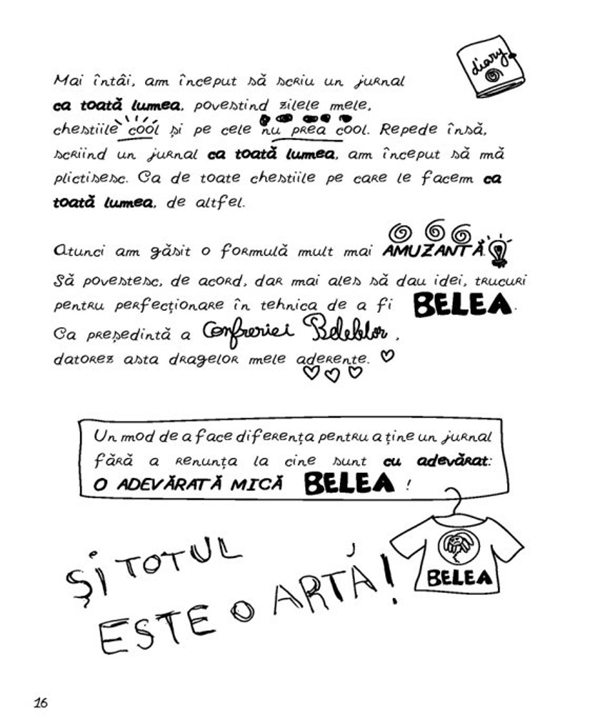 diary
Mai întâi, am început să scriu un jurnal
ca toată lumea, povestind zilele mele,
chestiile cool și pe cele nu prea cool. Repede însă,
scriind un jurnal ca toată lumea, am început să mă
plictisesc. Ca de toate chestiile pe care le facem ca
toată lumea, de altfel.
Atunci am găsit o formulă mult mai AMUZANTĂ.
Să povestesc, de acord, dar mai ales să dau idei, trucuri
pentru perfecționare în tehnica de a fi BELEA.
Ca președintă a Confreriei Belelelor,
datorez asta dragelor mele aderente.
Un mod de a face diferența pentru a ține un jurnal
fără a renunța la cine sunt cu adevărat:
O ADEVĂRATĂ MICĂ BELEA !
ȘI TOTUL
ESTE O ARTĂ!
BELEA
16